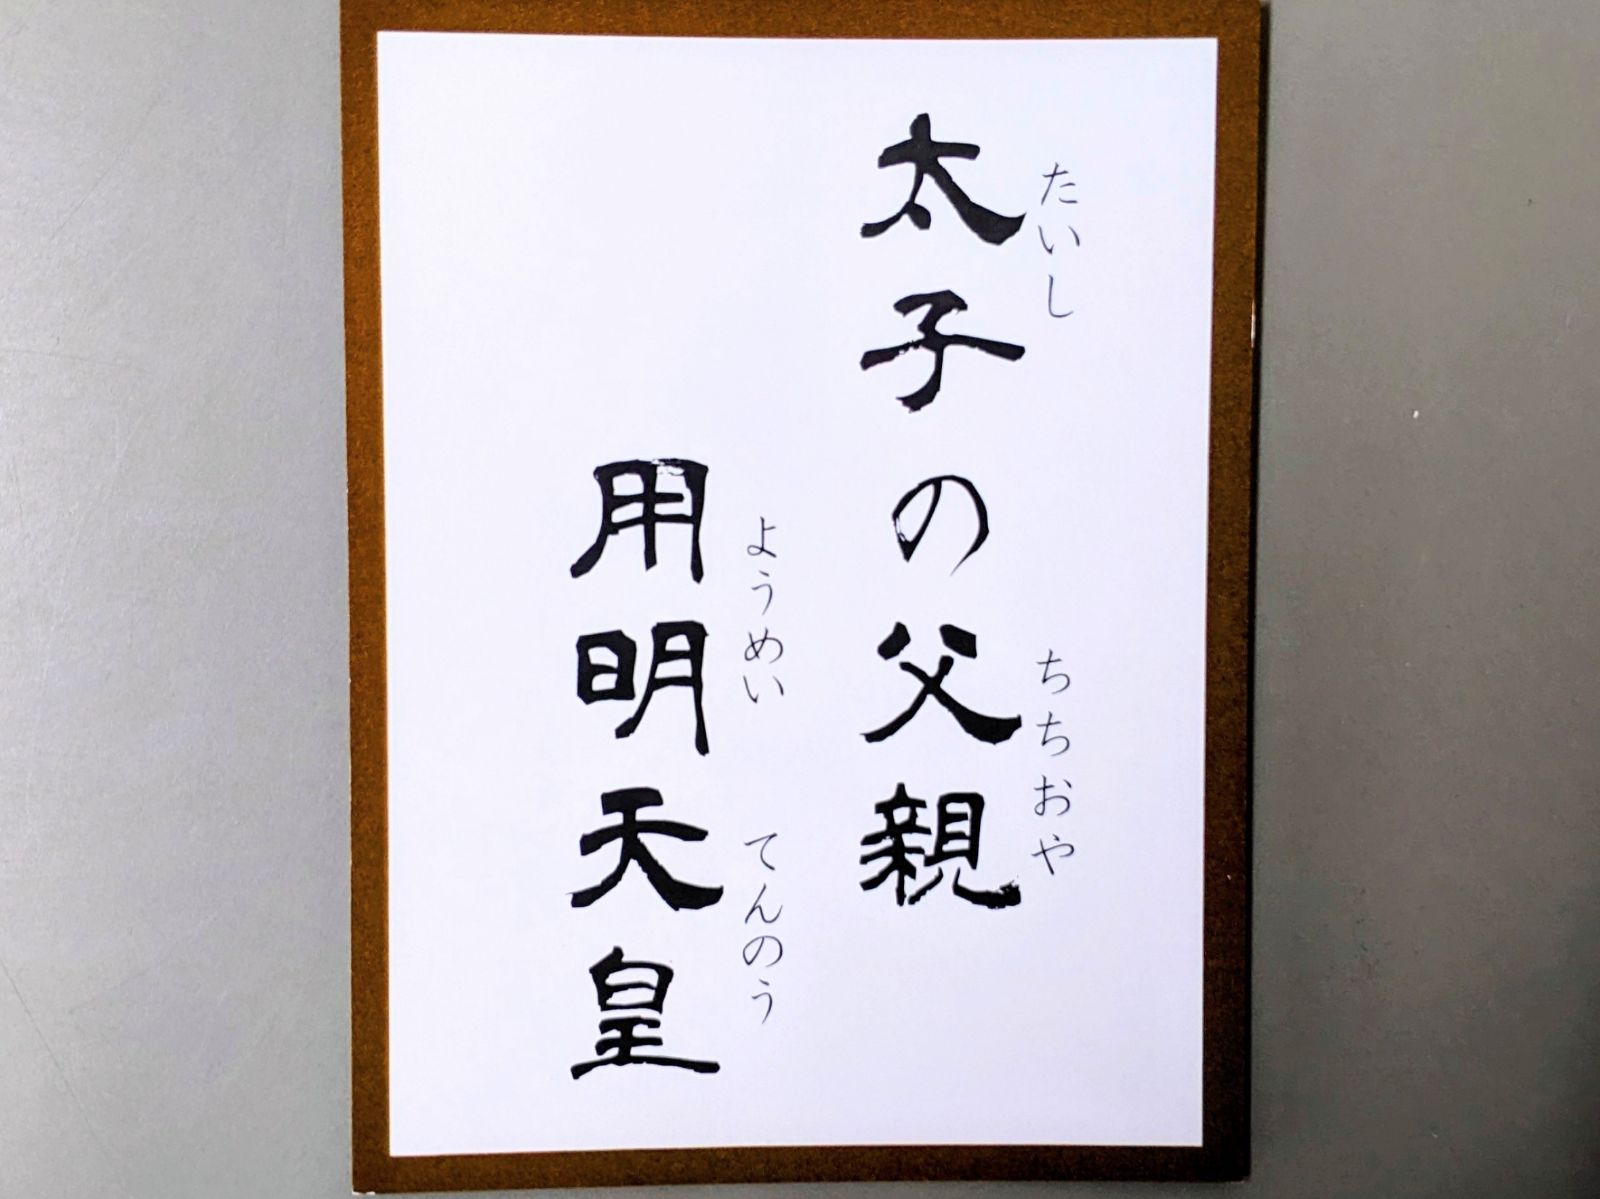 太子の父親
たいし
ちちおや
用明天皇
ようめい
てんのう